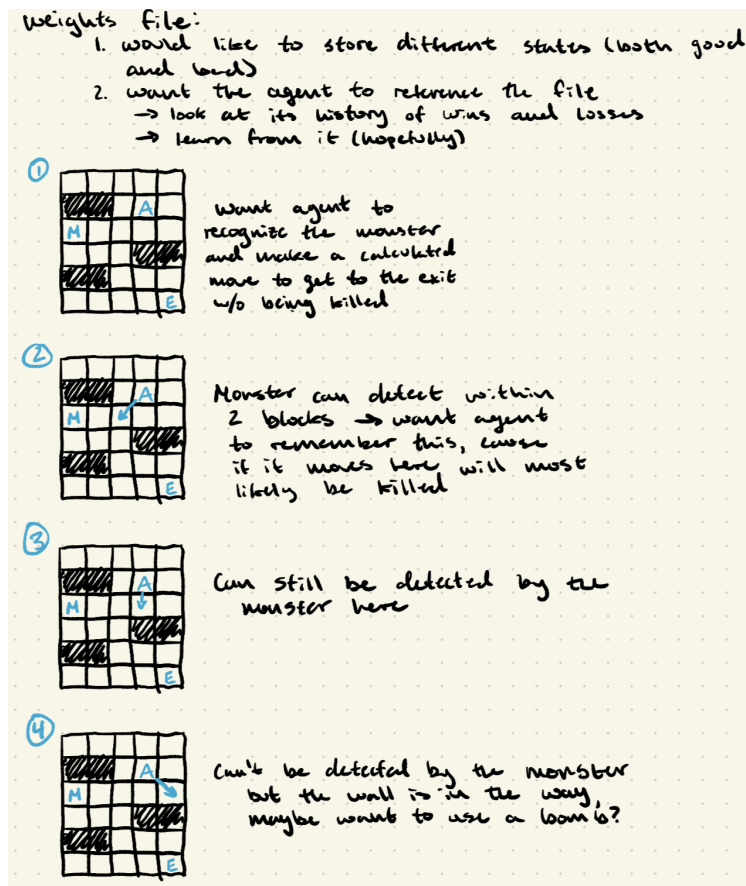 weights file:
1. would like to store different states (both good
and bad)
2. want the agent to reference the file
→ look at its history of wins and losses
→ learn from it (hopefully)
①
A
M
E
want agent to
recognize the monster
and make a calculated
move to get to the exit
w/o being killed
②
A
M
E
Monster can detect within
2 blocks → want agent
to remember this, cause
if it moves here will most
likely be killed
③
A
M
E
Can still be detected by the
monster here
④
A
M
E
Can't be detected by the monster
but the wall is in the way,
maybe want to use a bomb?